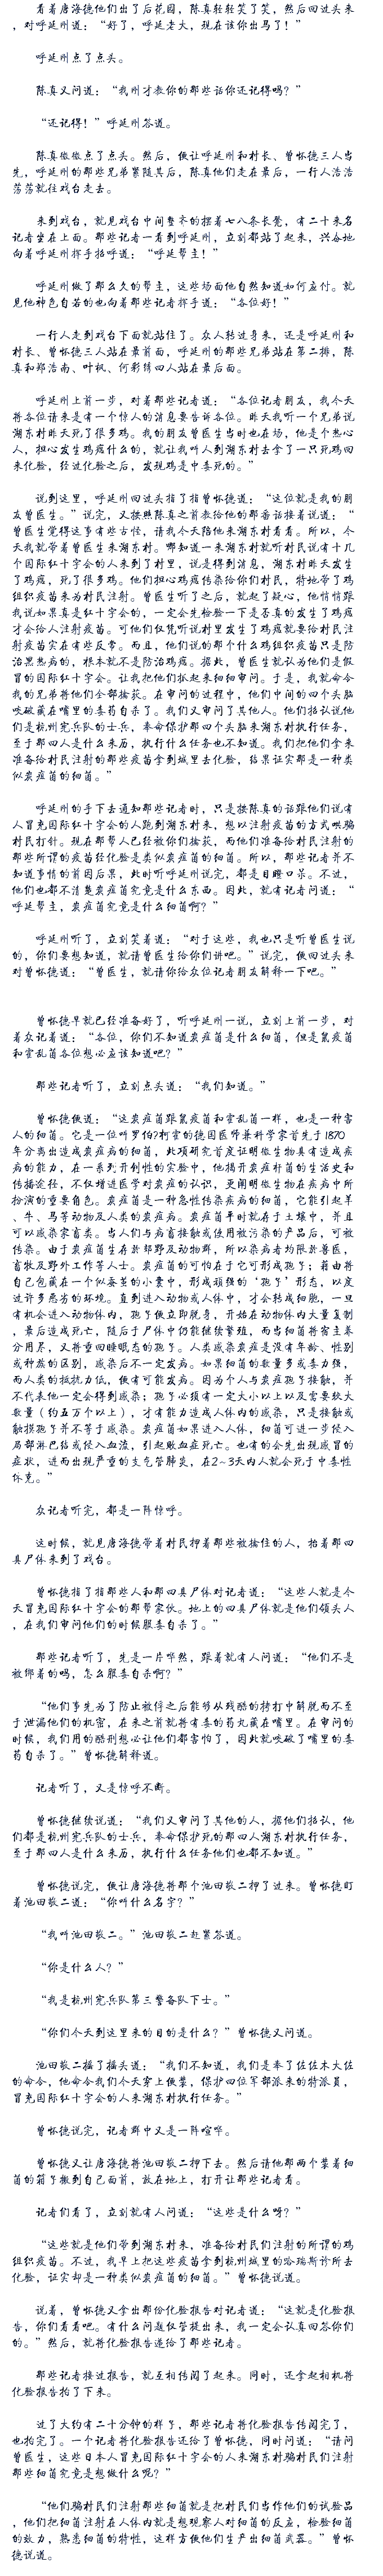 看着唐海德他们出了后花园，陈真轻轻笑了笑，然后回过头来
，对呼延州道：“好了，呼延老大，现在该你出马了！”
呼延州点了点头。
陈真又问道：“我刚才教你的那些话你还记得吗？”
“还记得！”呼延州答道。
陈真微微点了点头。然后，便让呼延州和村长、曾怀德三人当
先，呼延州的那些兄弟紧随其后，陈真他们走在最后，一行人浩浩
荡荡就往戏台走去。
来到戏台，就见戏台中间整齐的摆着七八条长凳，有二十来名
记者坐在上面。那些记者一看到呼延州，立刻都站了起来，兴奋地
向着呼延州挥手招呼道：“呼延帮主！”
呼延州做了那么久的帮主，这些场面他自然知道如何应付。就
见他神色自若的也向着那些记者挥手道：“各位好！”
一行人走到戏台下面就站住了。众人转过身来，还是呼延州和
村长、曾怀德三人站在最前面，呼延州的那些兄弟站在第二排，陈
真和郑浩南、叶枫、何彩绣四人站在最后面。
呼延州上前一步，对着那些记者道：“各位记者朋友，我今天
将各位请来是有一个惊人的消息要告诉各位。昨天我听一个兄弟说
湖东村昨天死了很多鸡。我的朋友曾医生当时也在场，他是个热心
人，担心发生鸡瘟什么的，就让我叫人到湖东村去拿了一只死鸡回
来化验，经过化验之后，发现鸡是中毒死的。”
说到这里，呼延州回过头指了指曾怀德道：“这位就是我的朋
友曾医生。”说完，又按照陈真之前教给他的那番话接着说道：“
曾医生觉得这事有些古怪，请我今天陪他来湖东村看看。所以，今
天我就带着曾医生来湖东村。哪知道一来湖东村就听村民说有十几
个国际红十字会的人来到了村里，说是得到消息，湖东村昨天发生
了鸡瘟，死了很多鸡。他们担心鸡瘟传染给你们村民，特地带了鸡
组织疫苗来为村民注射。曾医生听了之后，就起了疑心，他悄悄跟
我说如果真是红十字会的，一定会先检验一下是否真的发生了鸡瘟
才会给人注射疫苗。可他们仅凭听说村里发生了鸡瘟就要给村民注
射疫苗实在有些反常。而且，他们说的那个什么鸡组织疫苗只是防
治黑热病的，根本就不是防治鸡瘟。据此，曾医生就认为他们是假
冒的国际红十字会。让我把他们抓起来细细审问。于是，我就命令
我的兄弟将他们全部擒获。在审问的过程中，他们中间的四个头脑
咬破藏在嘴里的毒药自杀了。我们又审问了其他人。他们招认说他
们是杭州宪兵队的士兵，奉命保护那四个头脑来湖东村执行任务，
至于那四人是什么来历，执行什么任务也不知道。我们把他们拿来
准备给村民注射的那些疫苗拿到城里去化验，结果证实那是一种类
似炭疽菌的细菌。”
呼延州的手下去通知那些记者时，只是按陈真的话跟他们说有
人冒充国际红十字会的人跑到湖东村来，想以注射疫苗的方式哄骗
村民打针。现在那帮人已经被你们擒获，而他们准备给村民注射的
的那些所谓的疫苗经化验是类似炭疽菌的细菌。所以，那些记者并不
知道事情的前因后果，此时听呼延州说完，都是目瞪口呆。不过，
他们也都不清楚炭疽菌究竟是什么东西。因此，就有记者问道：“
呼延帮主，炭疽菌究竟是什么细菌啊？”
呼延州听了，立刻笑着道：“对于这些，我也只是听曾医生说
的，你们要想知道，就请曾医生给你们讲吧。”说完，便回过头来
对曾怀德道：“曾医生，就请你给众位记者朋友解释一下吧。”
曾怀德早就已经准备好了，听呼延州一说，立刻上前一步，对
着众记者道：“各位，你们不知道炭疽菌是什么细菌，但是鼠疫菌
和霍乱菌各位想必应该知道吧？”
那些记者听了，立刻点头道：“我们知道。”
曾怀德便道：“这炭疽菌跟鼠疫菌和霍乱菌一样，也是一种害
人的细菌。它是一位叫罗伯?柯霍的德国医师兼科学家首先于1870
年分离出造成炭疽病的细菌，此项研究首度证明微生物具有造成疾
病的能力，在一系列开创性的实验中，他揭开炭疽杆菌的生活史和
传播途径，不仅增进医学对炭疽的认识，更阐明微生物在疾病中所
扮演的重要角色。炭疽菌是一种急性传染疾病的细菌，它能引起羊
、牛、马等动物及人类的炭疽病。炭疽菌平时就存于土壤中，并且
可以感染家畜类。当人们与病畜接触或使用被污染的产品后，可被
传染。由于炭疽菌生存於郊野及动物群，所以染病者均限於兽医，
畜牧及野外工作等人士。炭疽菌的可怕在于它可形成孢子；藉由将
自己包藏在一个似茶茧的小囊中，形成顽强的‘孢子’形态，以度
过许多恶劣的环境。直到进入动物或人体中，才会转成细胞，一旦
有机会进入动物体内，孢子便立即脱身，开始在动物体内大量复制
，最后造成死亡，随后于尸体中仍能继续繁殖，而当细菌将宿主养
分用尽，又将重回睡眠态的孢子。人类感染炭疽是没有年龄、性别
或种族的区别，感染后不一定发病。如果细菌的数量多或毒力强，
而人类的抵抗力低，便有可能发病。因为个人与炭疽孢子接触，并
不代表他一定会得到感染；孢子必须有一定大小以上以及需要较大
数量（约五万个以上），才有能力造成人体内的感染，只是接触或
触摸孢子并不等于感染。炭疽菌如果进入人体，细菌可进一步侵入
局部淋巴结或侵入血流，引起败血症死亡。也有的会先出现感冒的
症状，进而出现严重的支气管肺炎，在2~3天内人就会死于中毒性
休克。”
众记者听完，都是一阵惊呼。
这时候，就见唐海德带着村民押着那些被擒住的人，抬着那四
具尸体来到了戏台。
曾怀德指了指那些人和那四具尸体对记者道：“这些人就是今
天冒充国际红十字会的那帮家伙。地上的四具尸体就是他们领头人
，在我们审问他们的时候服毒自杀了。”
那些记者听了，先是一片哗然，跟着就有人问道：“他们不是
被绑着的吗，怎么服毒自杀啊？”
“他们事先为了防止被俘之后能够从残酷的拷打中解脱而不至
于泄漏他们的机密，在来之前就将有毒的药丸藏在嘴里。在审问的
时候，我们用的酷刑想必让他们都害怕了，因此就咬破了嘴里的毒
药自杀了。”曾怀德解释道。
记者听了，又是惊呼不断。
曾怀德继续说道：“我们又审问了其他的人，据他们招认，他
们都是杭州宪兵队的士兵，奉命保护死的那四人湖东村执行任务，
至于那四人是什么来历，执行什么任务他们也都不知道。”
曾怀德说完，便让唐海德将那个池田敬二押了过来。曾怀德盯
着池田敬二道：“你叫什么名字？”
“我叫池田敬二。”池田敬二赶紧答道。
“你是什么人？”
“我是杭州宪兵队第三警备队下士。”
“你们今天到这里来的目的是什么？”曾怀德又问道。
池田敬二摇了摇头道：“我们不知道，我们是奉了佐佐木大佐
的命令，他命令我们今天穿上便装，保护四位军部派来的特派员，
冒充国际红十字会的人来湖东村执行任务。”
曾怀德说完，记者群中又是一阵喧哗。
曾怀德又让唐海德将池田敬二押下去。然后请他那两个装着细
菌的箱子搬到自己面前，放在地上，打开让那些记者看。
记者们看了，立刻就有人问道：“这些是什么呀？”
“这些就是他们带到湖东村来，准备给村民们注射的所谓的鸡
组织疫苗。不过，我早上把这些疫苗拿到杭州城里的哈瑞斯诊所去
化验，证实却是一种类似炭疽菌的细菌。”曾怀德说道。
说着，曾怀德又拿出那份化验报告对记者道：“这就是化验报
告，你们看看吧。有什么问题仅管提出来，我一定会认真回答你们
的。”然后，就将化验报告递给了那些记者。
那些记者接过报告，就互相传阅了起来。同时，还拿起相机将
化验报告拍了下来。
过了大约有二十分钟的样子，那些记者将化验报告传阅完了，
也拍完了。一个记者将化验报告还给了曾怀德，同时问道：“请问
曾医生，这些日本人冒充国际红十字会的人来湖东村骗村民们注射
那些细菌究竟是想做什么呢？”
“他们骗村民们注射那些细菌就是把村民们当作他们的试验品
，他们把细菌注射在人体内就是想观察人对细菌的反应，检验细菌
的效力，熟悉细菌的特性，这样方便他们生产出细菌武器。”曾怀
德说道。